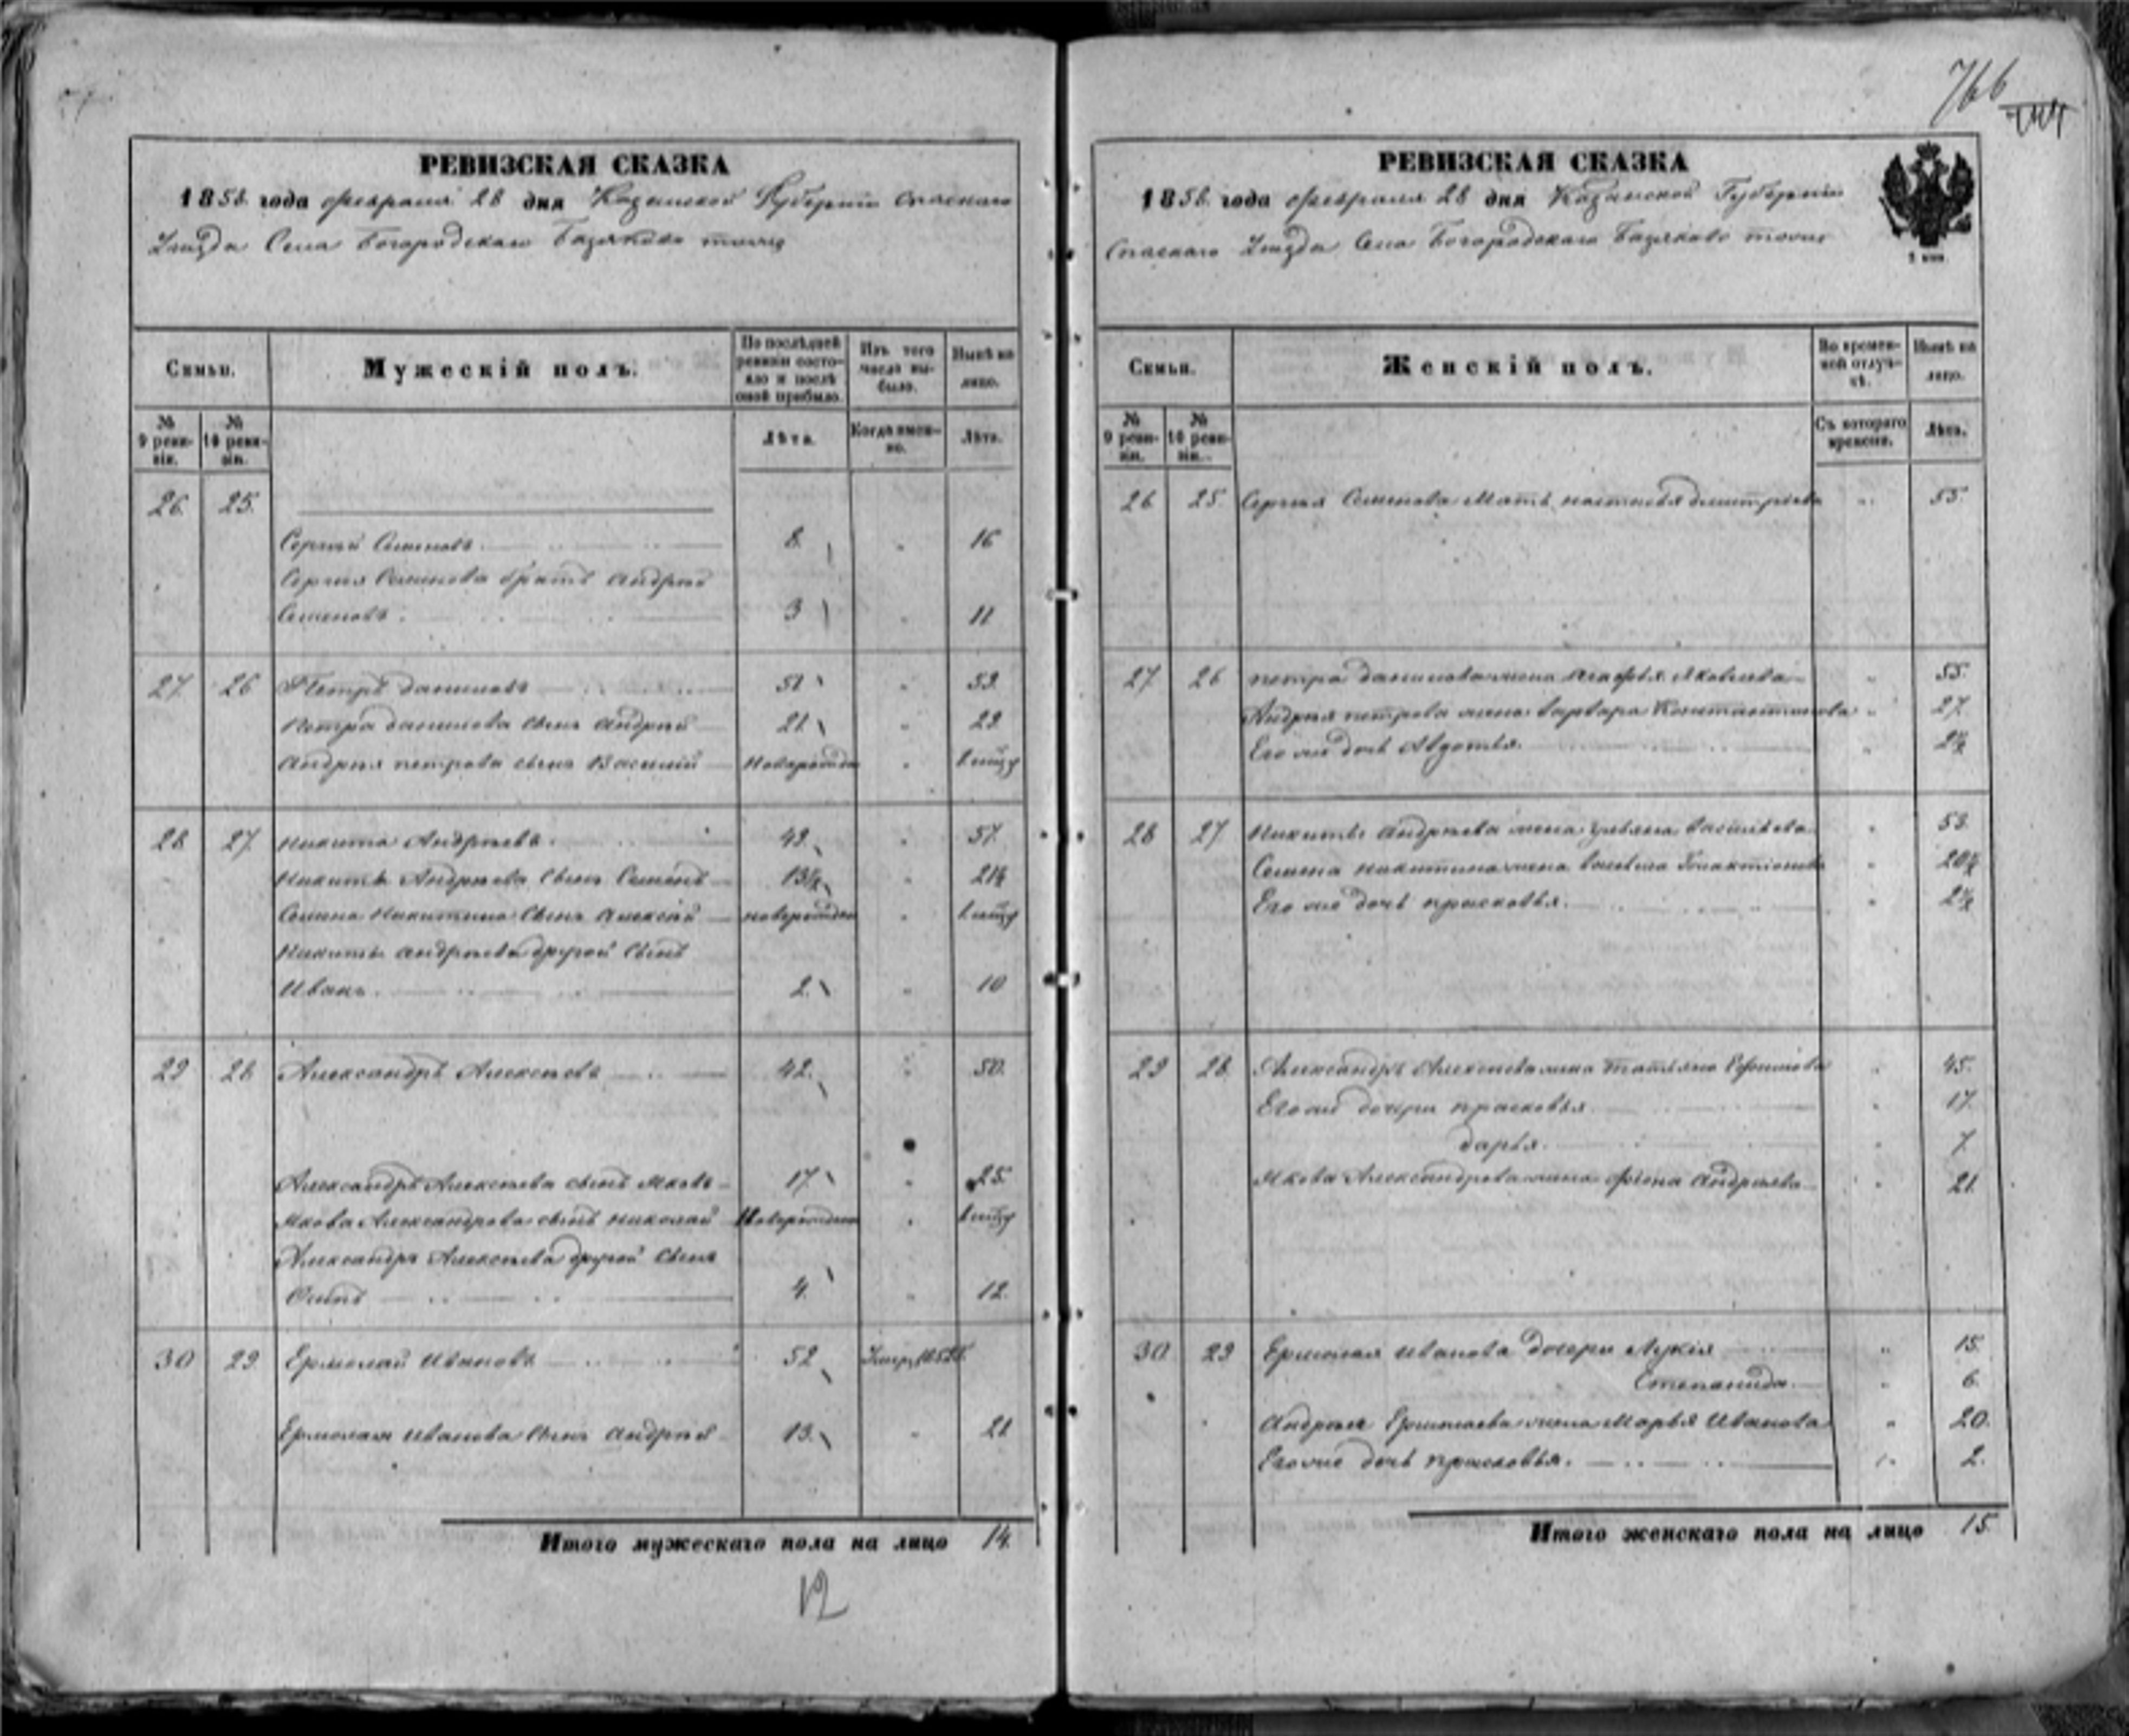 766
РЕВИЗСКАЯ СКАЗКА
1858 года февраля 28 дня Казанской Губернии Спаскаго
Уезда Села Богородскаго Базяково тожъ
Семьи.
Мужескій полъ.
По послѣдней ревизіи состояло и послѣ оной прибыло.
Изъ того числа выбыло.
Нынѣ на лицо.
№ 9 ревизіи.
№ 10 ревизіи.
Лѣта.
Когда именно.
Лѣта.
26. 25.
Сергей Семеновъ 8. 16
Сергея Семенова братъ Андрей
Семеновъ. 3 11
27. 26 Петръ Даниловъ 51 59.
Петра Данилова сынъ Андрей 21. 29.
Андрея Петрова сынъ Василий новорожден
28. 27. Никита Андреевъ. 49. 57.
Никиты Андреева сынъ Семенъ 13½ 21½
Семена Никитина сынъ Алексей новорожден
Никиты Андреева другой сынъ
Иванъ. 2. 10
29 28. Александръ Алексеевъ 42. 50.
Александра Алексеева сынъ Яковъ 17 25.
Якова Александрова сынъ Николай новорожден
Александра Алексеева другой сынъ
Осипъ 4. 12.
30 29. Ермолай Ивановъ 52
Ермолая Иванова сынъ Андрей 13. 21.
Итого мужескаго пола на лицо 14.
12
РЕВИЗСКАЯ СКАЗКА
1858 года февраля 28 дня Казанской Губернии
Спаскаго Уезда Села Богородскаго Базяково тожъ
Семьи.
Женскій полъ.
Во временной отлучкѣ.
Нынѣ на лицо.
№ 9 ревизіи.
№ 10 ревизіи.
Съ котораго времени.
Лѣта.
26 25. Сергея Семенова мать Настасья Дмитриева 55.
27. 26 Петра Данилова жена Агафья Яковлева 55.
Андрея Петрова жена Варвара Константинова 27.
Его же дочь Авдотья. 2½
28 27 Никиты Андреева жена Ульяна Васильева 53.
Семена Никитина жена 20½
Его же дочь Прасковья. 2½
29 28. Александра Алексеева жена Татьяна Ефимова 45.
Его же дочери Прасковья. 17.
Дарья. 7.
Якова Александрова жена Фёкла Андреева 21.
30. 29 Ермолая Иванова дочери Лукія 15.
Степанида. 6.
Андрея Ермолаева жена Марья Иванова 20.
Его же дочь Прасковья. 2.
Итого женскаго пола на лицо 15.